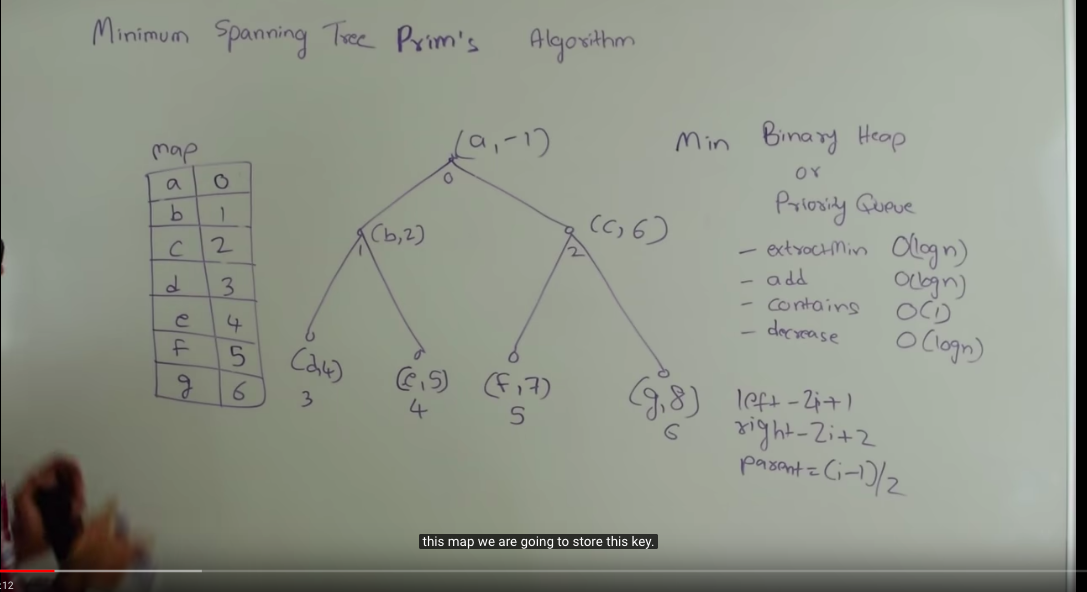 Minimum Spanning Tree Prim's Algorithm
map
a 0
b 1
c 2
d 3
e 4
f 5
g 6
(a,-1)
0
(b,2)
1
(c,6)
2
(d,4)
3
(e,5)
4
(f,7)
5
(g,8)
6
Min Binary Heap
or
Priority Queue
- extractMin O(logn)
- add O(logn)
- contains O(1)
- decrease O(logn)
left - 2i+1
right - 2i+2
parent = (i-1)/2
this map we are going to store this key.
:12